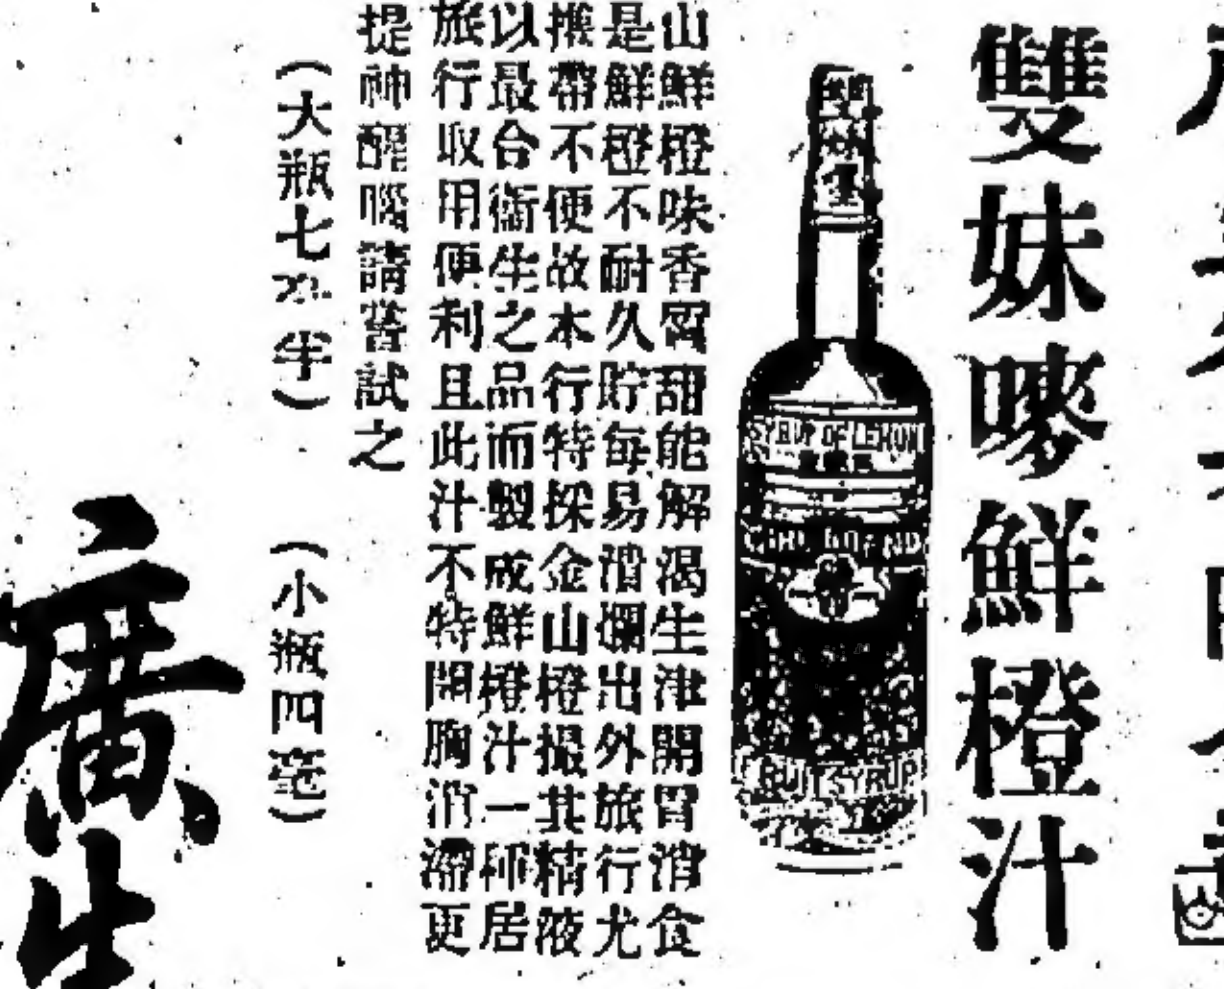 雙妹嘜鮮橙汁
雙妹
SYRUP OF LEMON
FRUIT SYRUP
山鮮橙味香質甜能解渴生津開胃消食
是鮮橙不耐久貯每易潰爛出外旅行尤
攜帶不便故本行特採金山橙撮其精液
以最合衞生之品而製成鮮橙汁一種居
旅行取用便利且此汁不特開胸消滯更
提神醒腦請嘗試之
(大瓶七毫半)
(小瓶四毫)
廣生